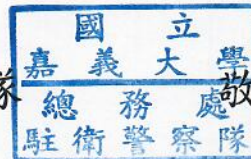 國立
嘉義大學
總務處
駐衛警察隊
隊
敬